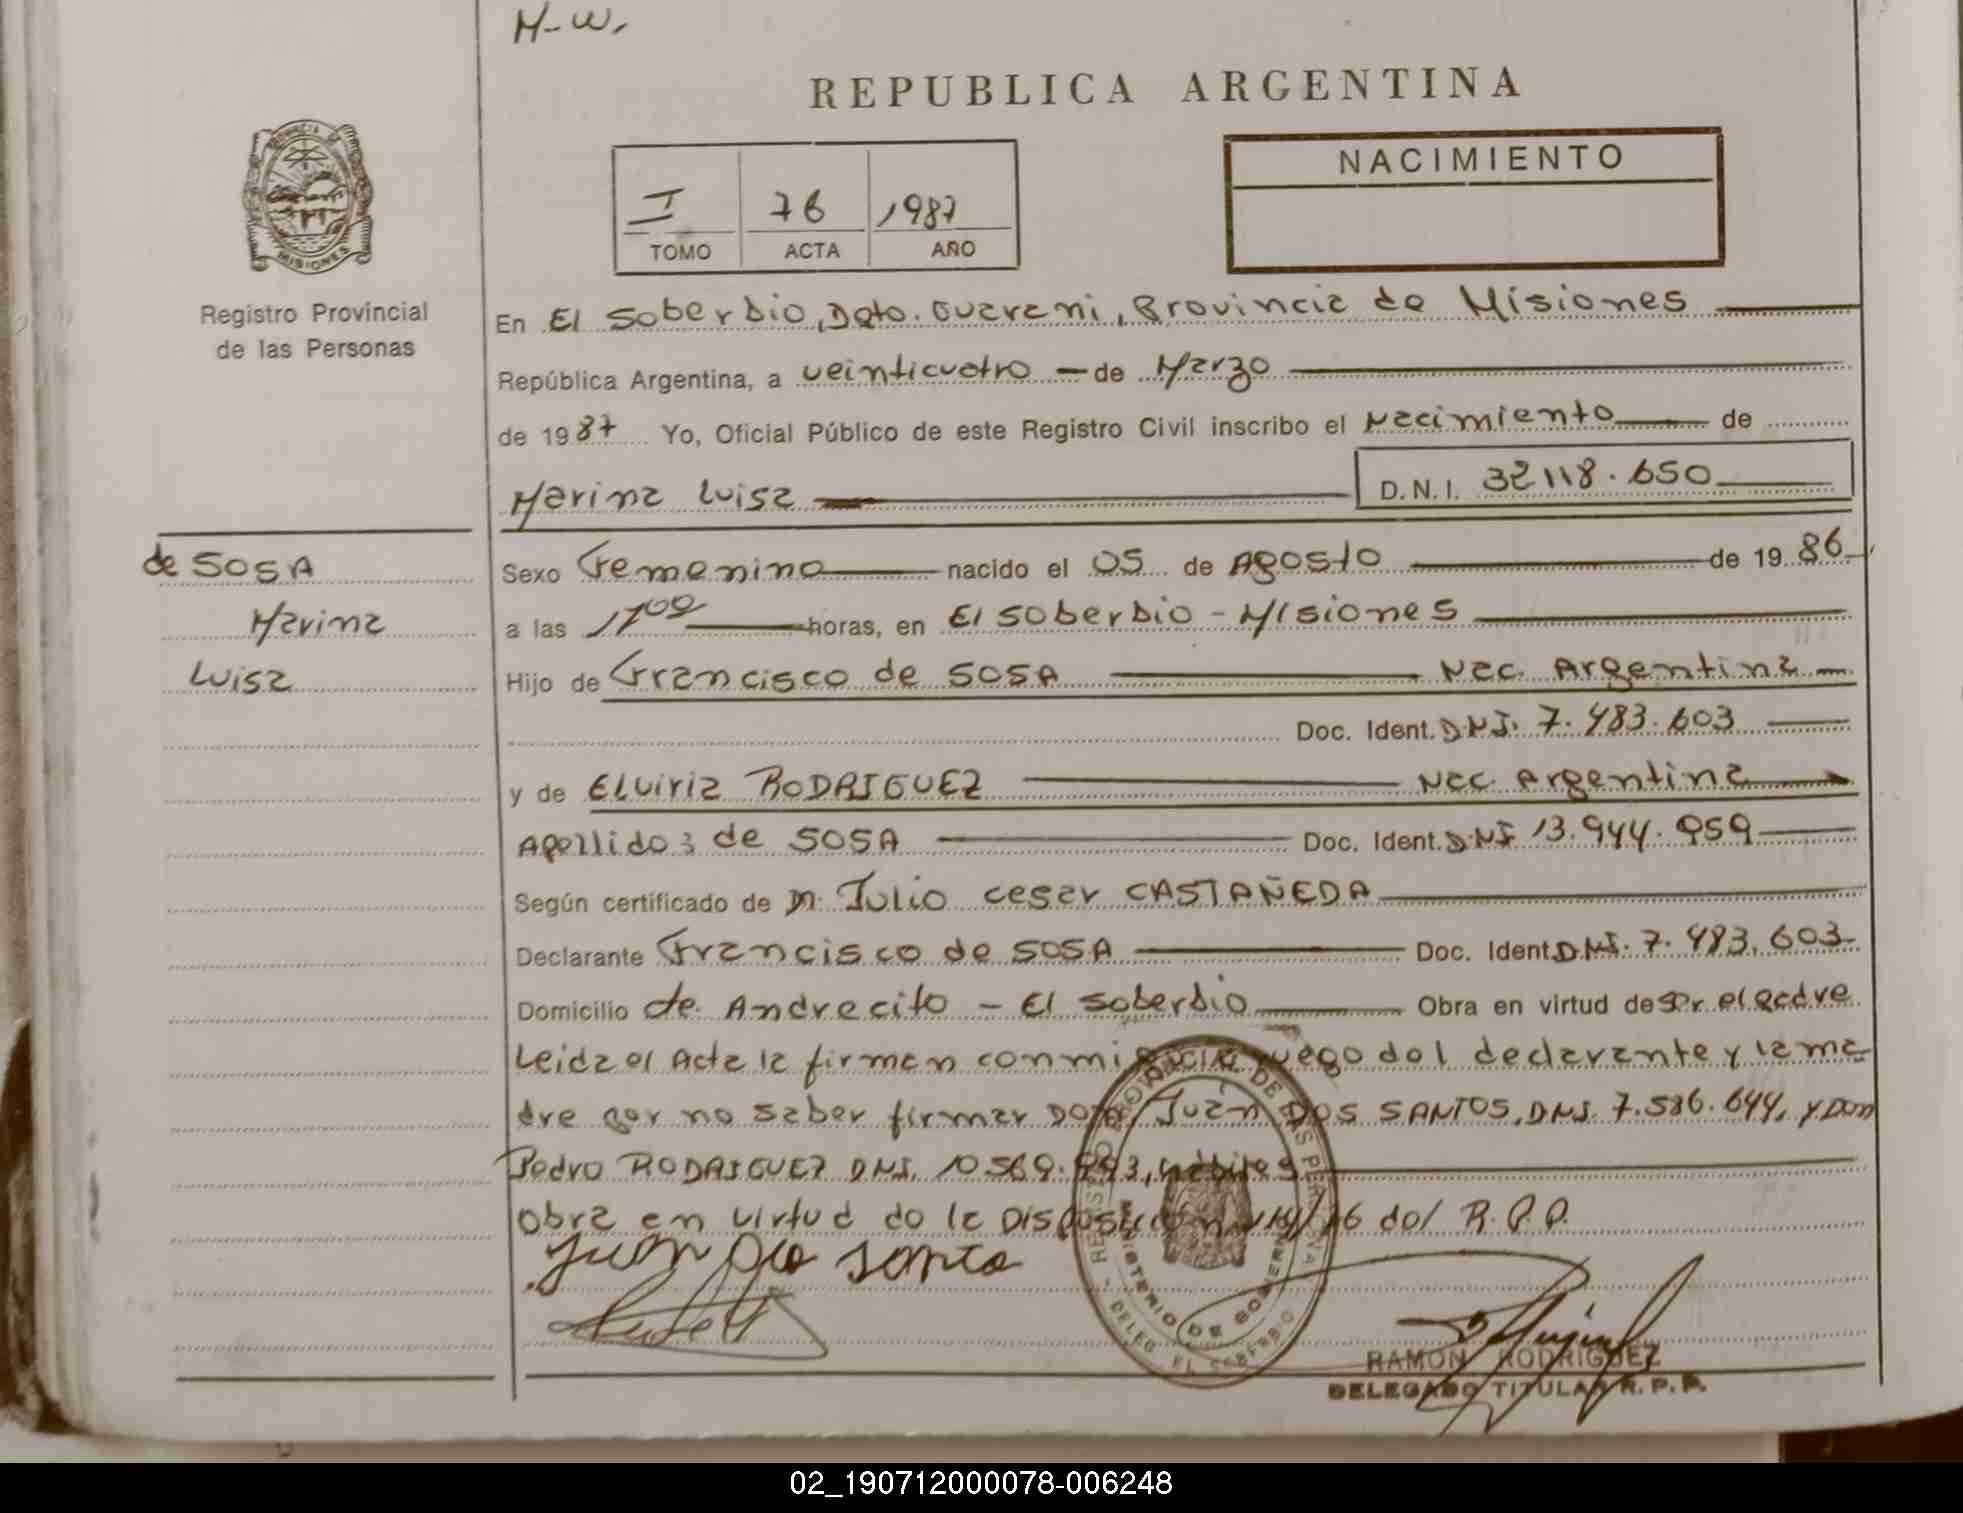 H-W.
REPUBLICA ARGENTINA
PROVINCIA DE
MISIONES
I 76 1987
TOMO ACTA AÑO
NACIMIENTO
Registro Provincial
de las Personas
En El Soberbio, Dpto. Guarani, Provincia de Misiones
República Argentina, a veinticuatro de Marzo
de 1987 Yo, Oficial Público de este Registro Civil inscribo el Nacimiento de
Marina Luisa D.N.I. 32118.650
de SOSA
Marina
Luisa
Sexo Femenino nacido el 05 de Agosto de 1986
a las 17 00 horas, en El Soberbio - Misiones
Hijo de Francisco de SOSA Nac. Argentina
Doc. Ident. DNI. 7.483.603
y de Elviria RODRIGUEZ Nac. Argentina
Apellido: de SOSA Doc. Ident. DNI 13.944.959
Según certificado de Dr. Julio Cesar CASTAÑEDA
Declarante Francisco de SOSA Doc. Ident. DNI. 7.483.603
Domicilio de Andrecito - El Soberbio Obra en virtud de ser el padre
Leida el Acta la firman conmigo a ruego del declarante y la ma-
dre por no saber firmar Don Juan DOS SANTOS, DNI. 7.586.644, y Don
Pedro RODRIGUEZ DNI. 10.569. hábiles
obra en virtud de la Disposición /86 del R.P.P.
Juan Do Santo
REGISTRO PROVINCIAL DE LAS PERSONAS
MINISTERIO DE GOBIERNO
DELEG. EL SOBERBIO
RAMON RODRIGUEZ
DELEGADO TITULAR R.P.P.
02_190712000078-006248